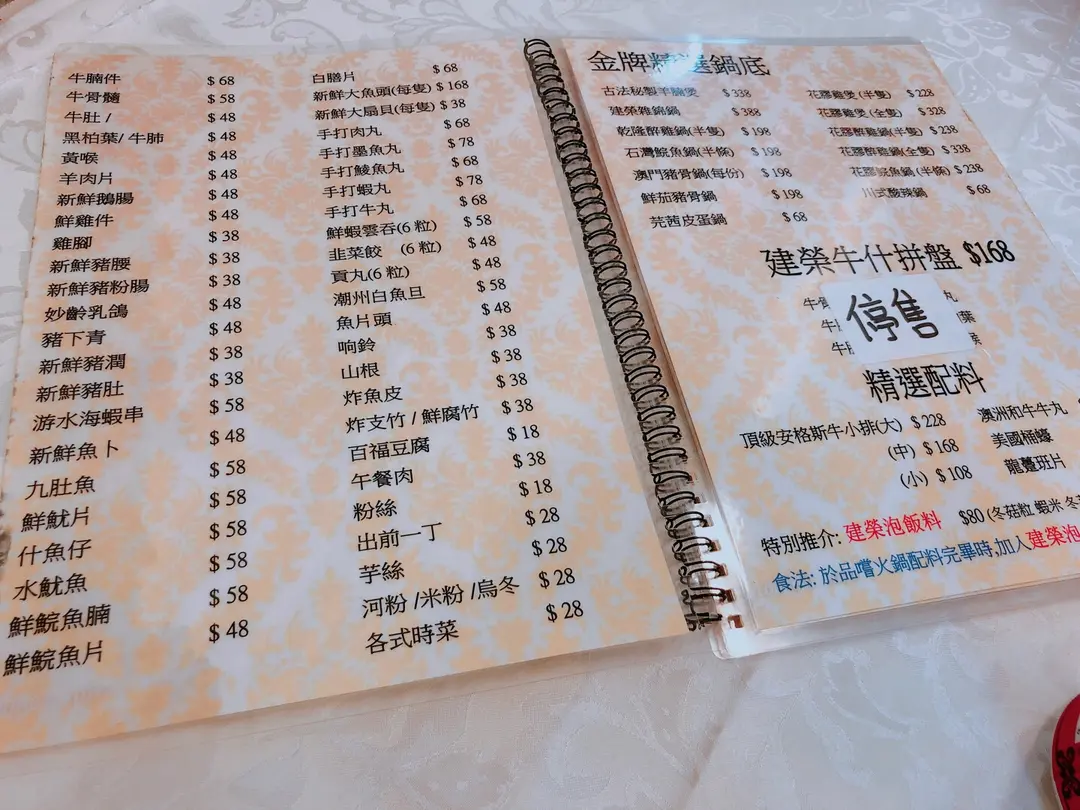 牛腩件 $ 68
牛骨髓 $ 58
牛肚 / $ 48
黑柏葉/ 牛肺 $ 48
黃喉 $ 48
羊肉片 $ 48
新鮮鵝腸 $ 48
鮮雞件 $ 48
雞腳 $ 38
新鮮豬腰 $ 38
新鮮豬粉腸 $ 38
妙齡乳鴿 $ 48
豬下青 $ 48
新鮮豬潤 $ 38
新鮮豬肚 $ 38
游水海蝦串 $ 58
新鮮魚卜 $ 48
九肚魚 $ 58
鮮魷片 $ 58
什魚仔 $ 58
水魷魚 $ 58
鮮鯇魚腩 $ 58
鮮鯇魚片 $ 48
白膳片 $ 68
新鮮大魚頭(每隻) $ 168
新鮮大扇貝(每隻) $ 38
手打肉丸 $ 68
手打墨魚丸 $ 78
手打鯪魚丸 $ 68
手打蝦丸 $ 78
手打牛丸 $ 68
鮮蝦雲吞(6 粒) $ 58
韭菜餃 (6 粒) $ 48
貢丸(6 粒) $ 48
潮州白魚旦 $ 58
魚片頭 $ 48
响鈴 $ 38
山根 $ 38
炸魚皮 $ 38
炸支竹 / 鮮腐竹 $ 38
百福豆腐 $ 18
午餐肉 $ 38
粉絲 $ 18
出前一丁 $ 28
芋絲 $ 28
河粉 /米粉 /烏冬 $ 28
各式時菜 $ 28
金牌精選鍋底
古法秘製羊腩煲 $ 338
建榮雜錦鍋 $ 388
乾隆醉雞鍋(半隻) $ 198
石灣鯇魚鍋(半條) $ 198
澳門豬骨鍋(每份) $ 198
鮮茄豬骨鍋 $ 198
芫茜皮蛋鍋 $ 68
花膠雞煲 (半隻) $ 228
花膠雞煲 (全隻) $ 328
花膠醉雞鍋(半隻) $ 238
花膠醉雞鍋(全隻) $ 338
花膠鯇魚鍋 (半條) $ 238
川式酸辣鍋 $ 68
建榮牛什拼盤 $168
停售
精選配料
頂級安格斯牛小排(大) $ 228
(中) $ 168
(小) $ 108
澳洲和牛牛丸
美國桶蠔
龍躉班片
特別推介: 建榮泡飯料 $80 (冬菇粒 蝦米 冬
食法: 於品嚐火鍋配料完畢時,加入建榮泡